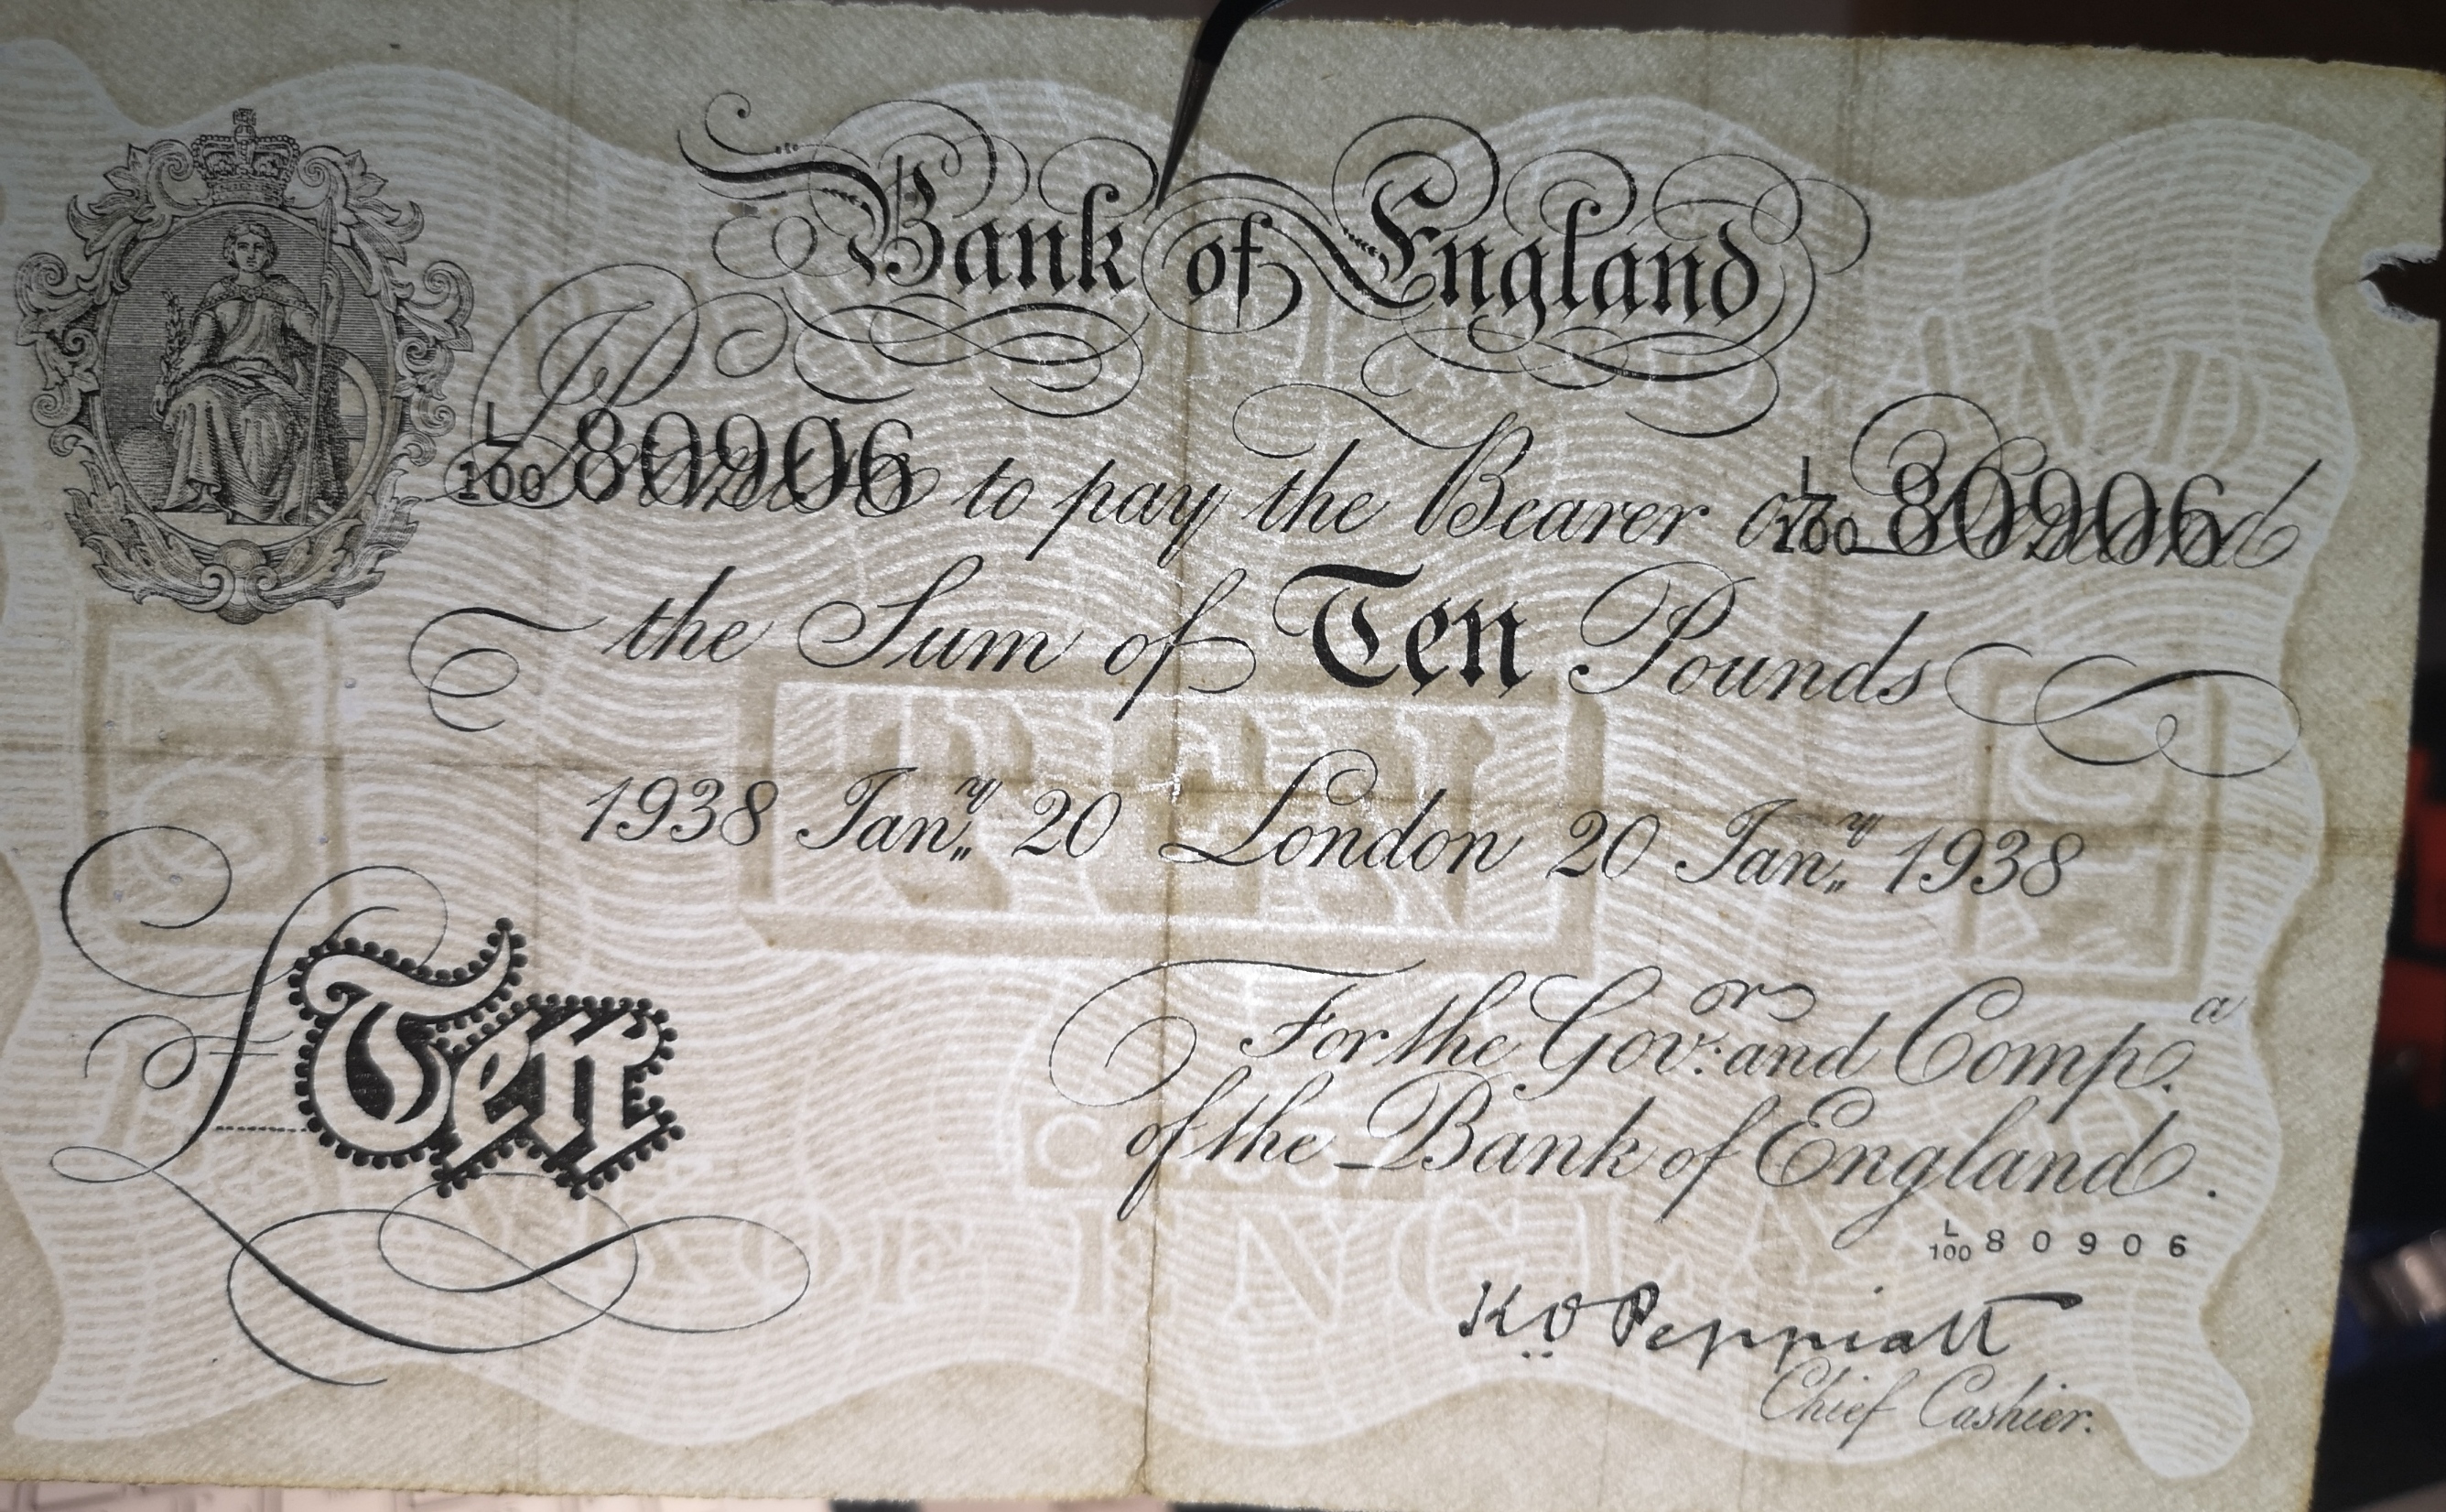 Bank of England
L/100 80906 to pay the Bearer on Demand L/100 80906
the Sum of Ten Pounds
1938 Jan.ry 20 London 20 Jan.ry 1938
For the Gov.ors and Comp.a
£ Ten
of the Bank of England.
L/100 80906
K O Peppiatt
Chief Cashier.
TEN